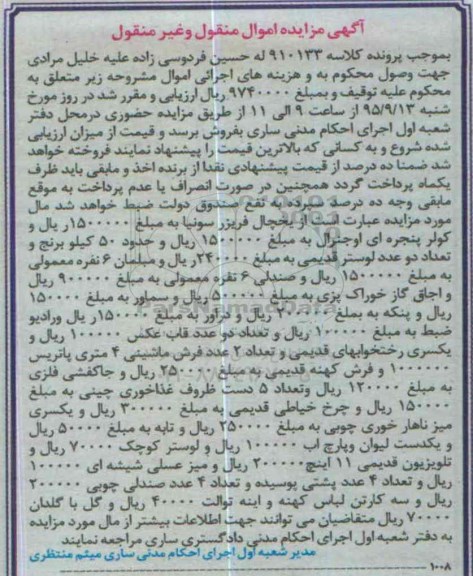 آگهی مزایده اموال منقول وغیر منقول
بموجب پرونده کلاسه ۹۱۰۱۳۳ له حسین فردوسی زاده علیه خلیل مرادی
جهت وصول محکوم به و هزینه های اجرائی اموال مشروحه زیر متعلق به
محکوم علیه توقیف و بمبلغ ۹۷۴۰۰۰۰ ریال ارزیابی و مقرر شد در روز مورخ
شنبه ۹۵/۹/۱۳ از ساعت ۹ الی ۱۱ از طریق مزایده حضوری درمحل دفتر
شعبه اول اجرای احکام مدنی ساری بفروش برسد و قیمت از میزان ارزیابی
شده شروع و به کسانی که بالاترین قیمت را پیشنهاد نمایند فروخته خواهد
شد ضمنا ده درصد از قیمت پیشنهادی نقدا از برنده اخذ و مابقی باید ظرف
یکماه پرداخت گردد همچنین در صورت انصراف یا عدم پرداخت به موقع
مابقی وجه ده درصد سپرده به نفع صندوق دولت ضبط خواهد شد. مال
مورد مزایده عبارت است از یخچال فریزر سونیا به مبلغ ریال و
کولر پنجره ای اوجنرال به مبلغ ۱۵۰۰۰۰۰ ریال و حدود ۵۰ کیلو برنج و
تعداد دو عدد لوستر قدیمی به مبلغ ریال و مبلمان ۶ نفره معمولی
به مبلغ ۱۵۰۰۰۰۰ ریال و صندلی ۶ نفره معمولی به مبلغ ریال
و اجاق گاز خوراک پزی به مبلغ ریال و سماور به مبلغ ۱۵۰۰۰۰
ریال و پنکه به بمبلغ ریال و فرآور به مبلغ ریال ورادیو
ضبط به مبلغ ۱۰۰۰۰۰ ریال و تعداد دو عدد قاب عکس ۱۰۰۰۰۰ ریال و
یکسری رختخوابهای قدیمی و تعداد ۲ عدد فرش ماشینی ۴ متری پاتریس
۱۰۰۰۰۰۰ و فرش کهنه قدیمی به مبلغ ۲۵۰۰۰۰ ریال و جاکفشی فلزی
به مبلغ ۱۲۰۰۰۰ ریال وتعداد ۵ دست ظروف غذاخوری چینی به مبلغ
۱۵۰۰۰۰ ریال و چرخ خیاطی قدیمی به مبلغ ۳۰۰۰۰۰ ریال و یکسری
میز ناهار خوری چوبی به مبلغ ۲۵۰۰۰۰ ریال و تابه به مبلغ ۵۰۰۰۰ ریال
و یکدست لیوان وپارچ اب ۱۰۰۰۰۰ ریال و لوستر کوچک ۷۰۰۰۰ ریال و
تلویزیون قدیمی ۱۱ اینچ ۲۰۰۰۰۰ ریال و میز عسلی شیشه ای ۱۰۰۰۰۰
ریال و تعداد ۴ عدد پشتی پوسیده و تعداد ۴ عدد صندلی چوبی ۲۰۰۰۰۰
ریال و سه کارتن لباس کهنه و اینه توالت ۴۰۰۰۰ ریال و گل با گلدان
۷۰۰۰۰ ریال متقاضیان می توانند جهت اطلاعات بیشتر از مال مورد مزایده
به دفتر شعبه اول اجرای احکام مدنی دادگستری ساری مراجعه نمایند
مدیر شعبه اول اجرای احکام مدنی ساری میثم منتظری
۱۰۰۸